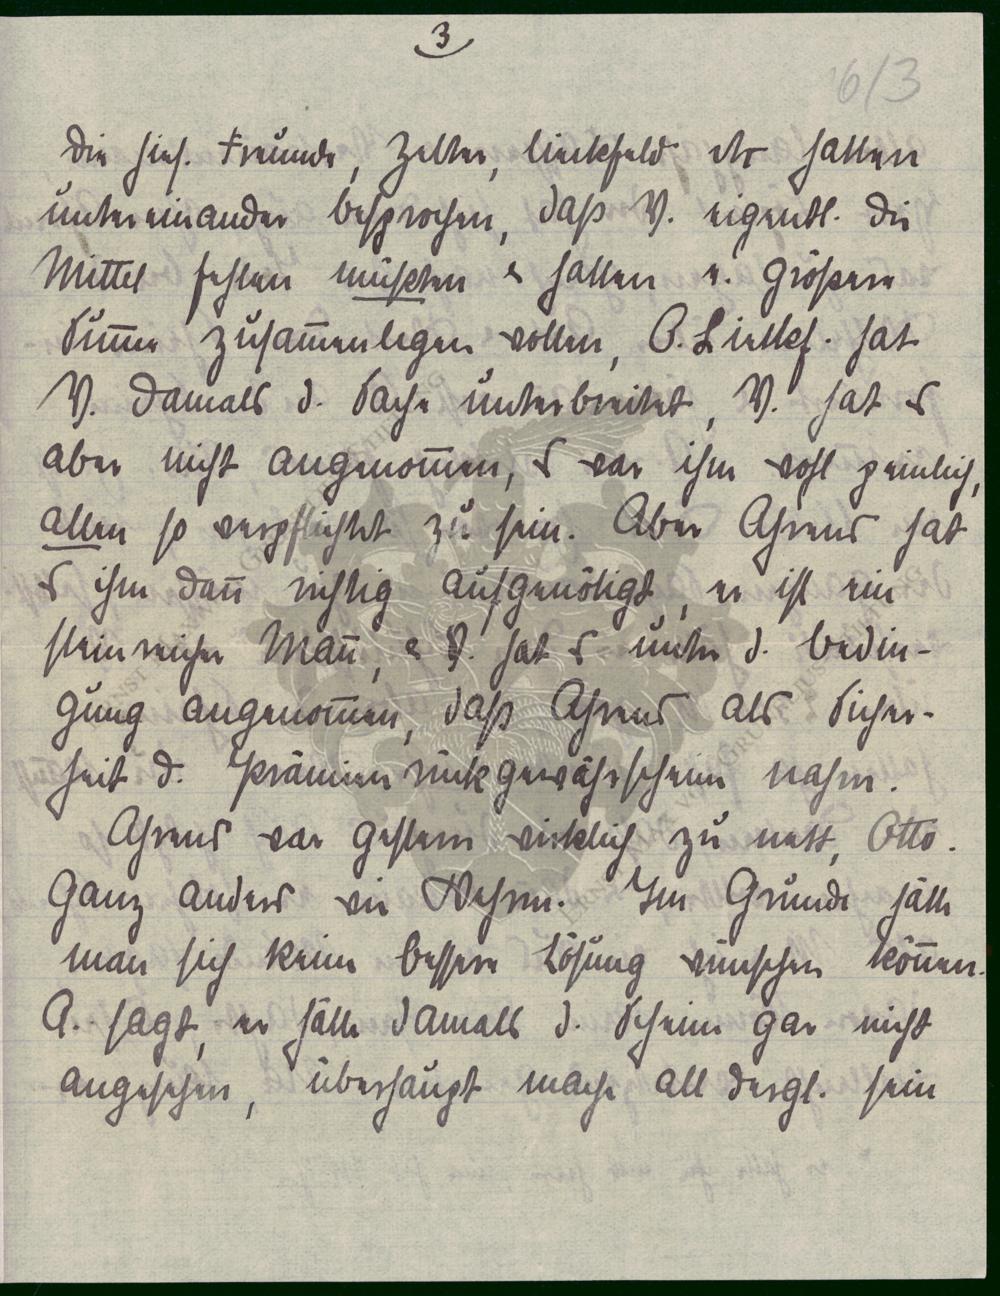 3
6/3
die hies. Freunde, Zelter, Lieckfeld etc hatten
untereinander besprochen, daß V. eigentl. die
Mittel fehlen müßten & hatten e. größere
Sum̄e zusam̄enlegen wollen, O. Lieckf. hat
V. damals d. Sache unterbreitet, V. hat es
aber nicht angenom̄en, es war ihm wohl peinlich,
allen so verpflichtet zu sein. Aber Ahrens hat
es ihm dan̄ richtig aufgenötigt, er ist ein
steinreicher Man̄, & V. hat es unter d. Bedin-
gung angenom̄en, daß Ahrens als Sicher-
heit d. Prämienrückgewährscheine nahm.
Ahrens war gestern wirklich zu nett, Otto.
Ganz anders wie Oehsen. Im Grunde hätte
man sich keine bessere Lösung wünschen kön̄en.
A. sagt, er hätte damals d. Scheine gar nicht
angesehen, überhaupt mache all dergl. sein